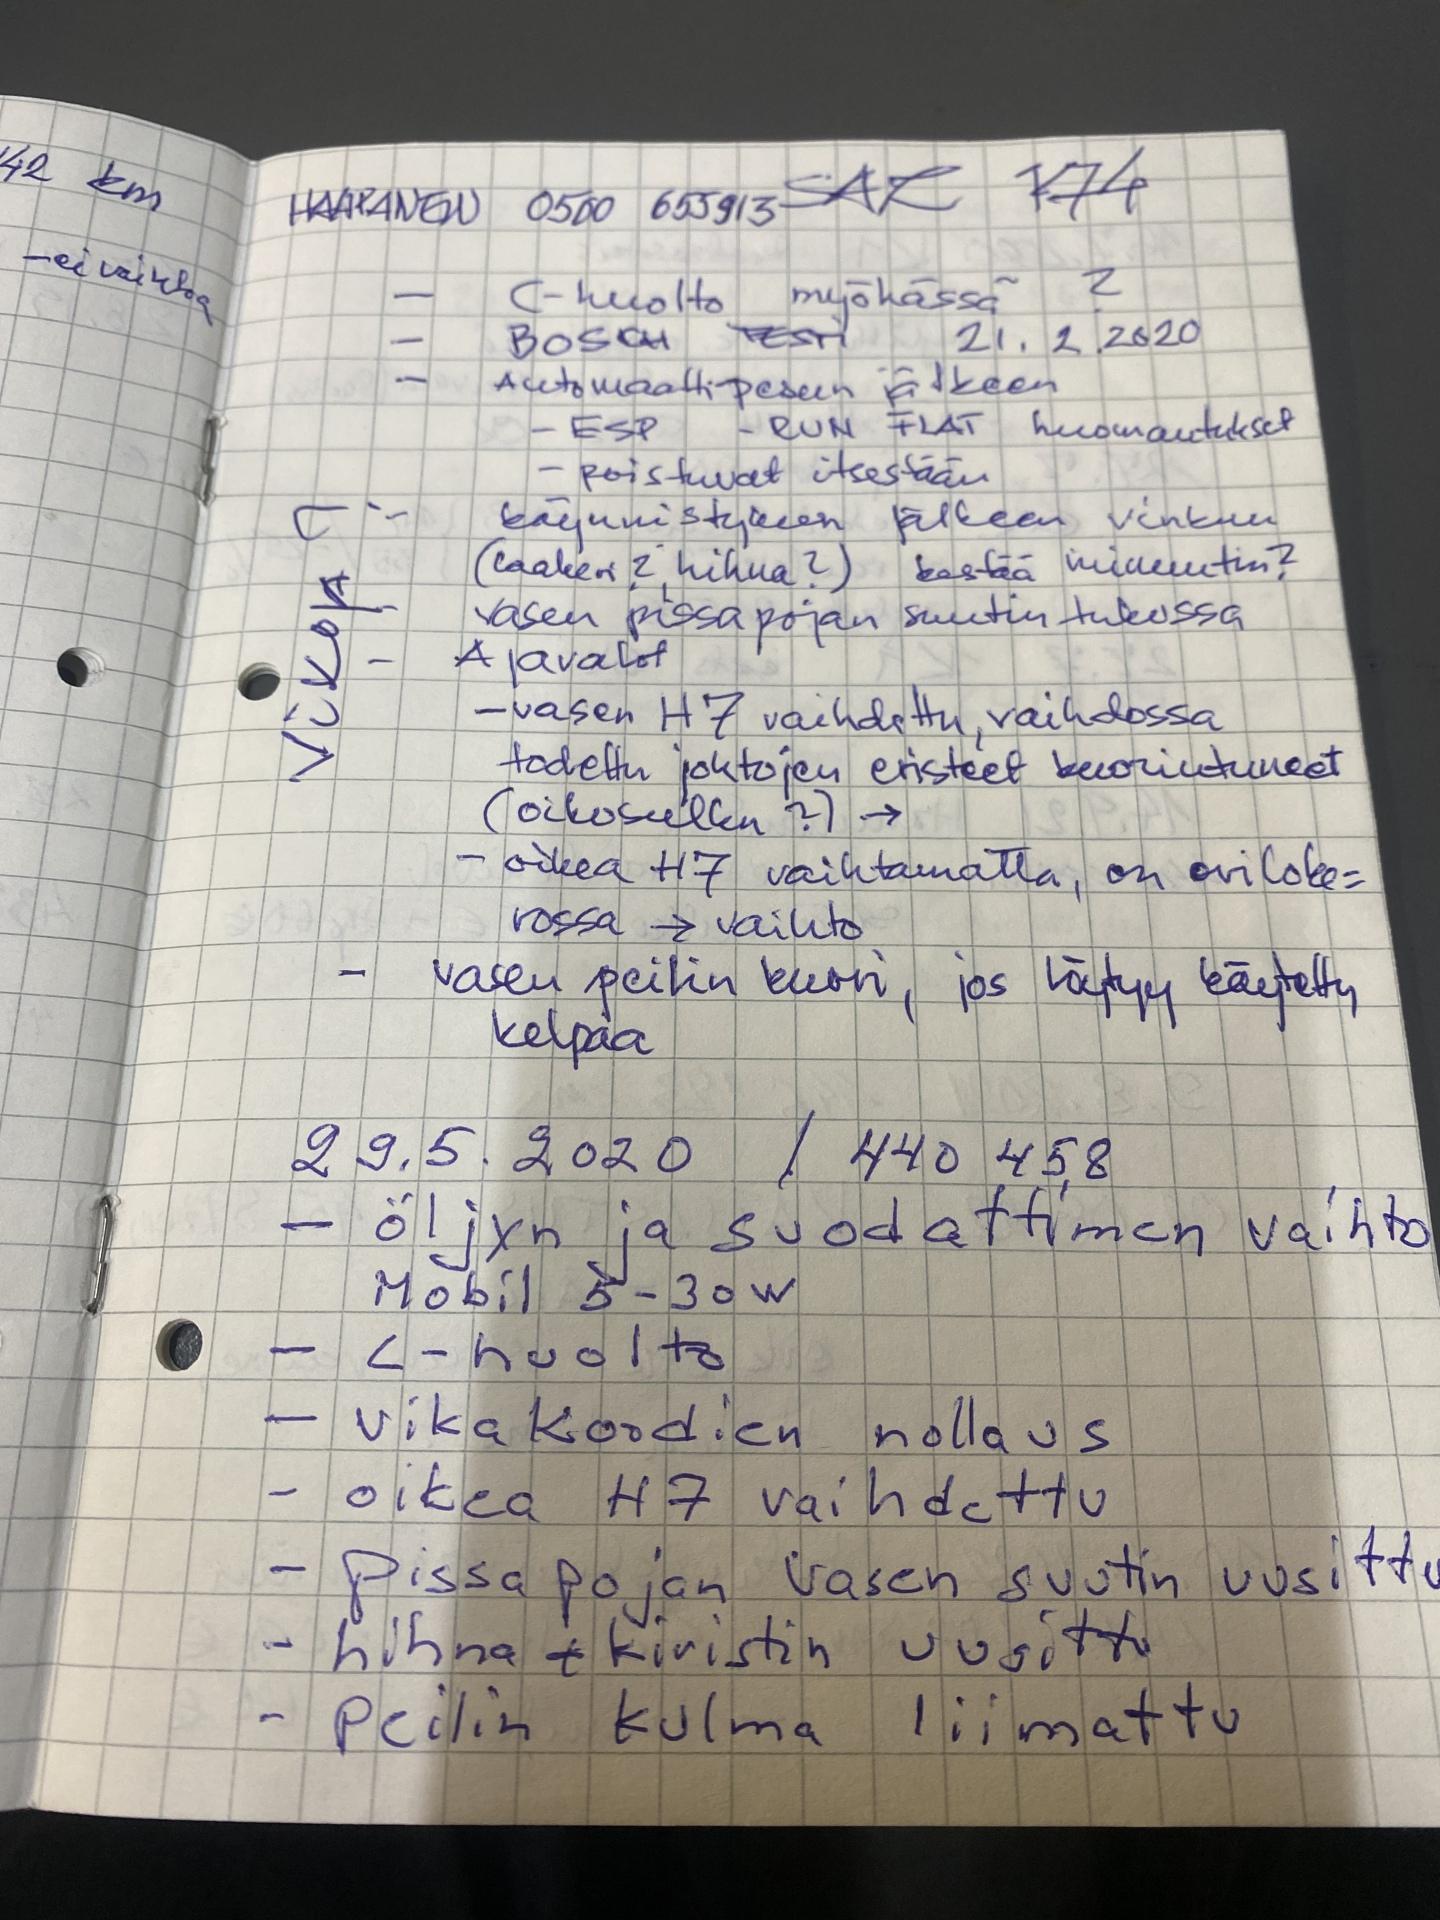 42 km
- ei vaihtoa
HAAPANEN 0500 655913 SAZ 174
- C-huolto myöhässä ?
- BOSCH TESTI 21.2.2020
- Automaattipesun jälkeen
- ESP - RUN FLAT huomautukset
- poistuvat itsestään
- käynnistymisen jälkeen vinkuu
(laakeri?, hihna?) kestää minuutin?
- vasen pissapojan suutin tukossa
- Ajovalot
- vasen H7 vaihdettu, vaihdossa
todettu johtojen eristeet kuoriutuneet
(oikosulku?) →
- oikea H7 vaihtamatta, on oviloke=
rossa → vaihto
- vasen peilin kuori, jos löytyy käytetty
kelpaa
29.5.2020 / 440 458
- öljyn ja suodattimen vaihto
Mobil 5-30W
- C-huolto
- vikakoodien nollaus
- oikea H7 vaihdettu
- Pissapojan vasen suutin uusittu
- hihna + kiristin uusittu
- Peilin kulma liimattu